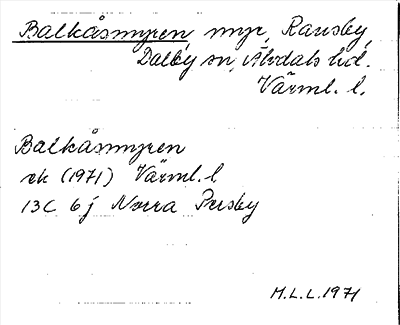 Balkåsmyren, myr,Ransby,
Dalby sn, Älvdals hd.
Värml. l.
Balkåsmyren
ek (1971) Värml. l
13C 6j Norra Persby
M.L.L. 1971